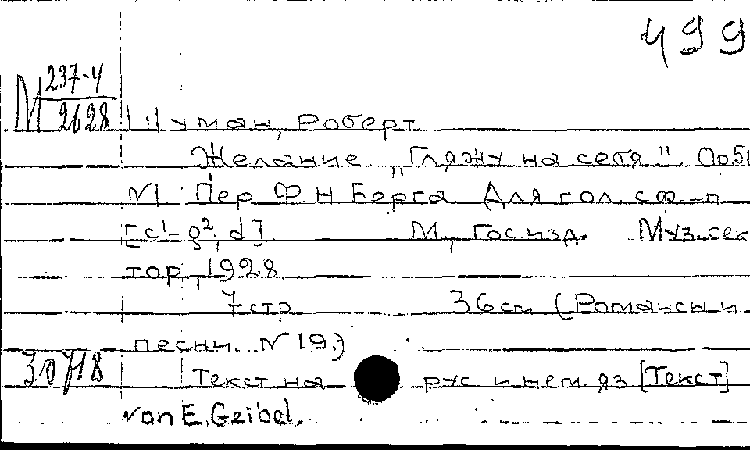 499
М 237-4
2628
Шуман, Роберт
Желание „Гляжу на себя". Op 51
N1 Пер Ф Н Берга Для гол. с ф-п
[c¹-g², d] М, Госизд. Муз. сек
тор, 1928
7 стр 36 см (Романсы и
песни. N 19.)
30718
Текст на рус и нем. яз [Текст]
von E. Geibel.